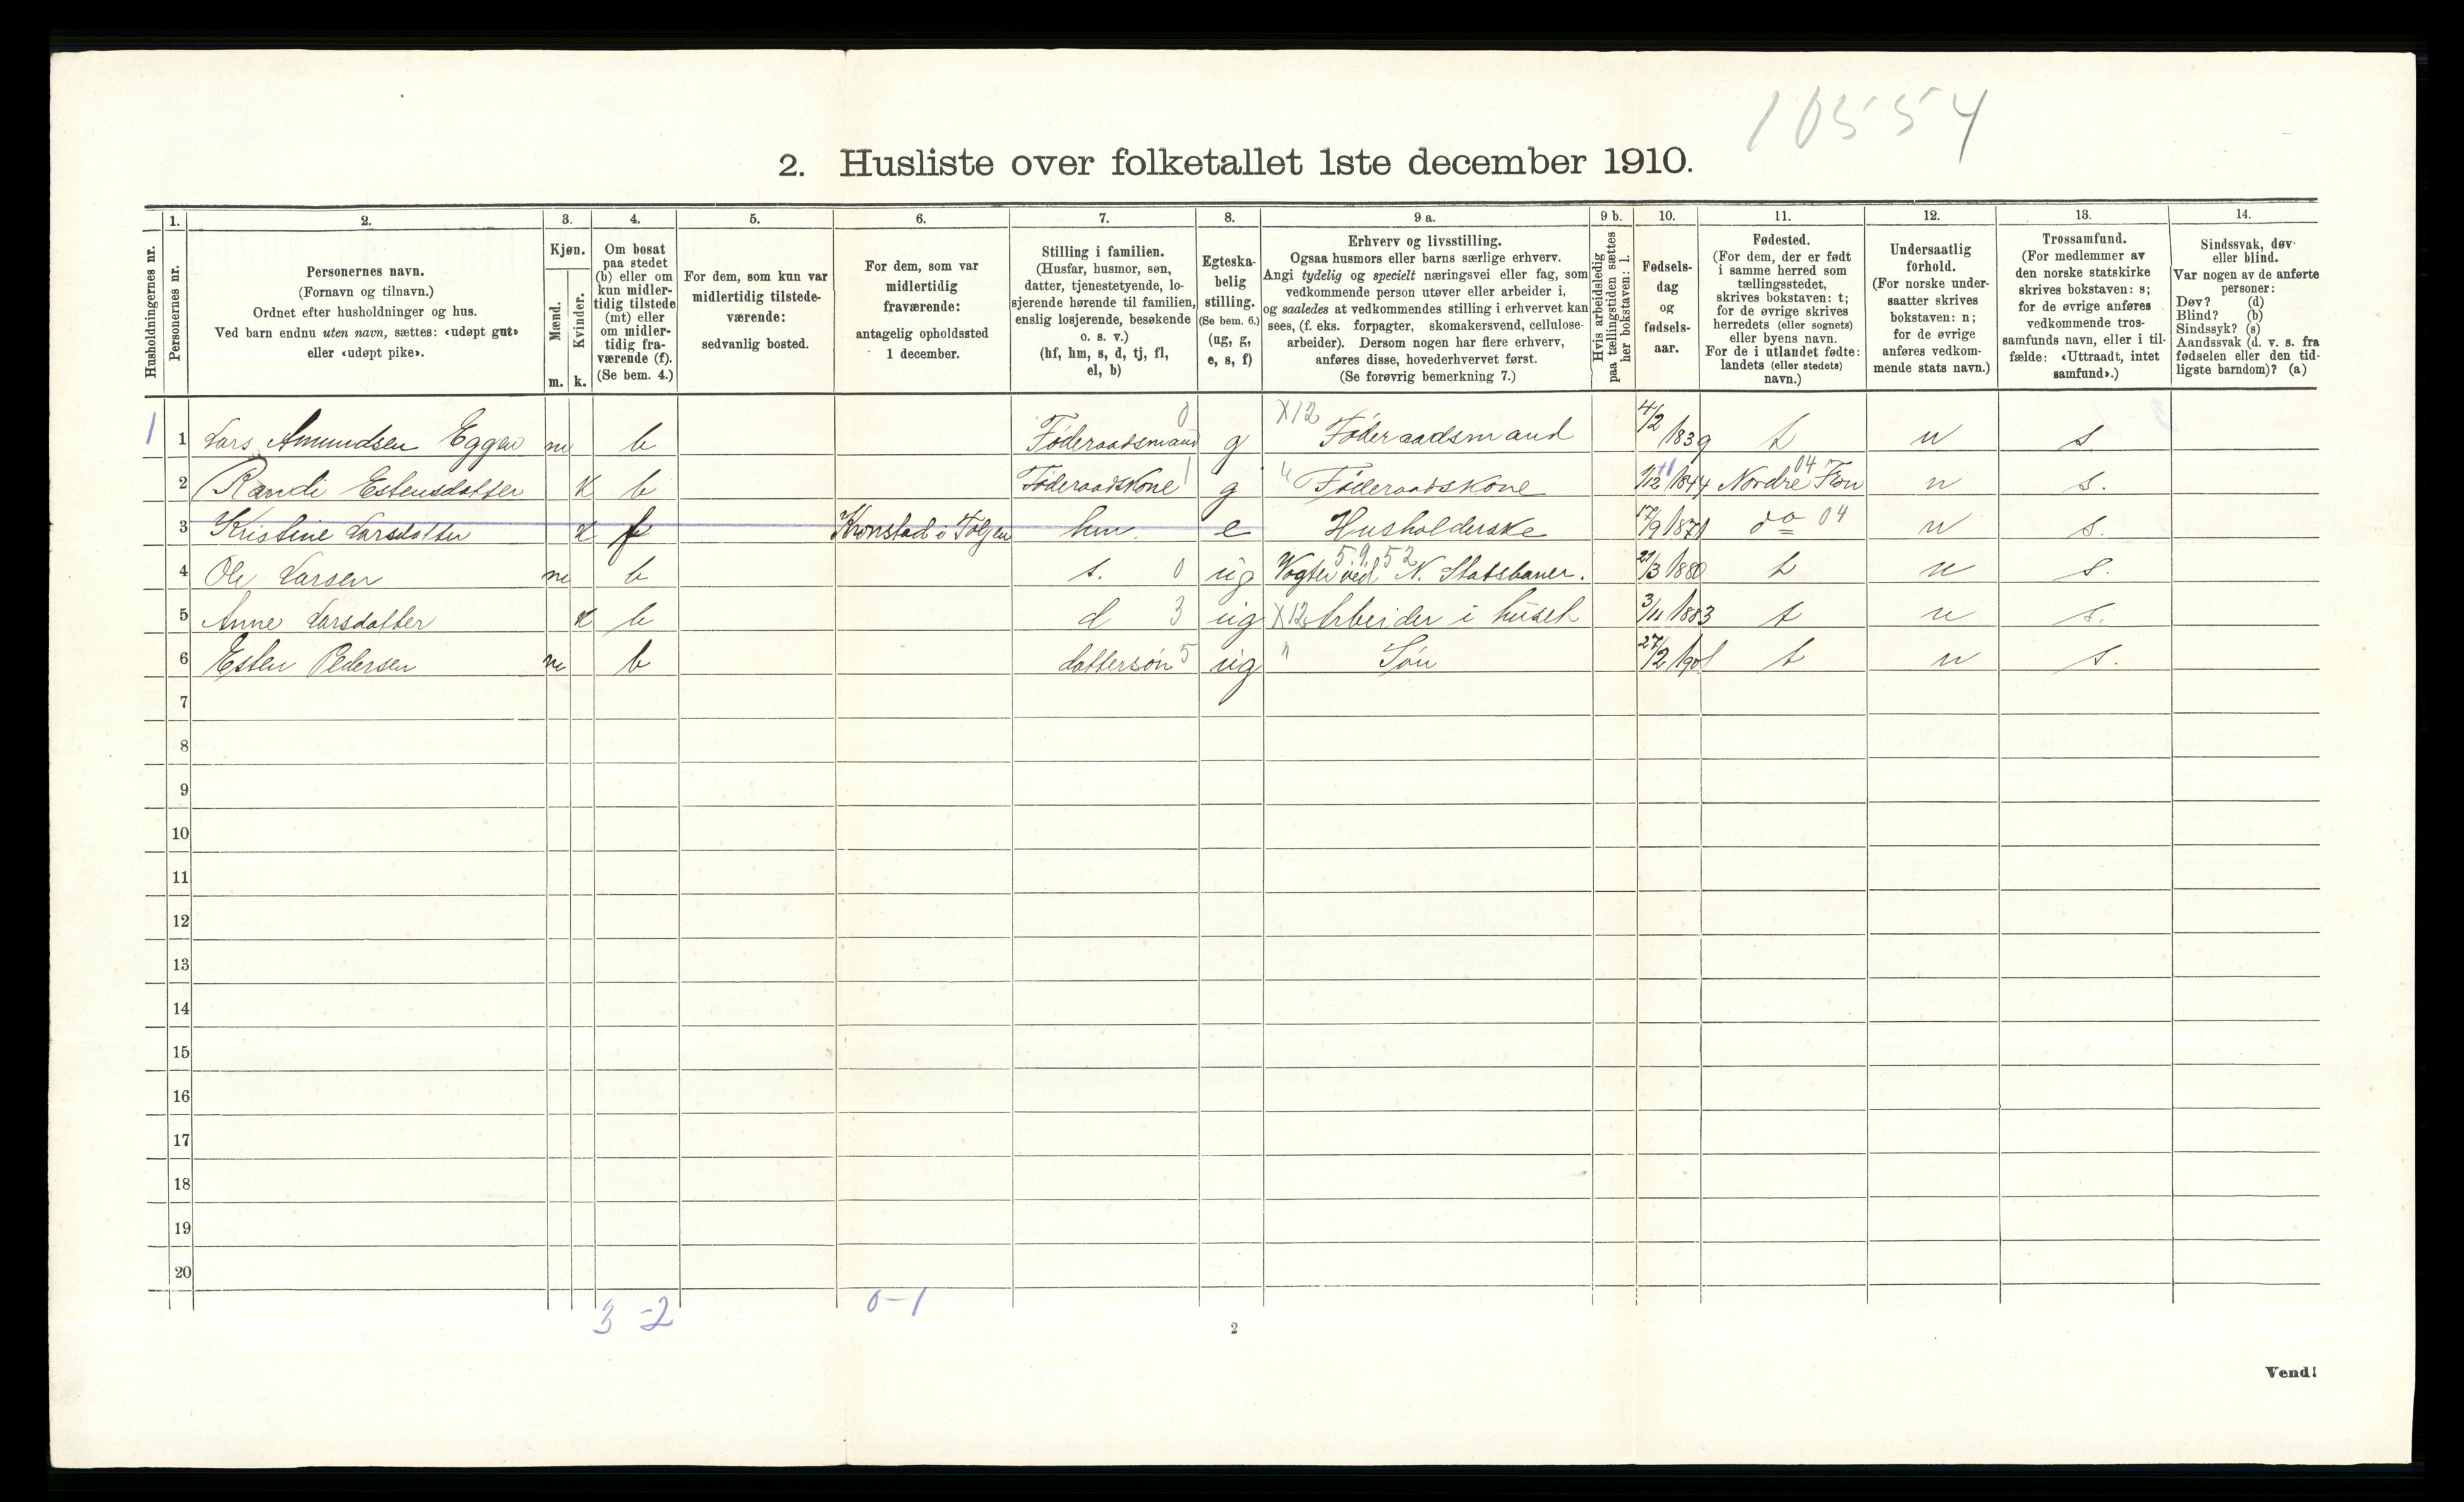 10554
2. Husliste over folketallet 1ste december 1910.
1. 2. 3. 4. 5. 6. 7. 8. 9 a. 9 b. 10. 11. 12. 13. 14.
Husholdningernes nr.
Personernes nr.
Personernes navn.
(Fornavn og tilnavn.)
Ordnet efter husholdninger og hus.
Ved barn endnu uten navn, sættes: «udøpt gut»
eller «udøpt pike».
Kjøn.
Mænd.
Kvinder.
m. k.
Om bosat
paa stedet
(b) eller om
kun midler-
tidig tilstede
(mt) eller
om midler-
tidig fra-
værende (f).
(Se bem. 4.)
For dem, som kun var
midlertidig tilstede-
værende:
sedvanlig bosted.
For dem, som var
midlertidig
fraværende:
antagelig opholdssted
1 december.
Stilling i familien.
(Husfar, husmor, søn,
datter, tjenestetyende, lo-
sjerende hørende til familien,
enslig losjerende, besøkende
o. s. v.)
(hf, hm, s, d, tj, fl,
el, b)
Egteska-
belig
stilling.
(Se bem. 6.)
(ug, g,
e, s, f)
Erhverv og livsstilling.
Ogsaa husmors eller barns særlige erhverv.
Angi tydelig og specielt næringsvei eller fag, som
vedkommende person utøver eller arbeider i,
og saaledes at vedkommendes stilling i erhvervet kan
sees, (f. eks. forpagter, skomakersvend, cellulose-
arbeider). Dersom nogen har flere erhverv,
anføres disse, hovederhvervet først.
(Se forøvrig bemerkning 7.)
Hvis arbeidsledig
paa tællingstiden sættes
her bokstaven: l.
Fødsels-
dag
og
fødsels-
aar.
Fødested.
(For dem, der er født
i samme herred som
tællingsstedet,
skrives bokstaven: t;
for de øvrige skrives
herredets (eller sognets)
eller byens navn.
For de i utlandet fødte:
landets (eller stedets)
navn.)
Undersaatlig
forhold.
(For norske under-
saatter skrives
bokstaven: n;
for de øvrige
anføres vedkom-
mende stats navn.)
Trossamfund.
(For medlemmer av
den norske statskirke
skrives bokstaven: s;
for de øvrige anføres
vedkommende tros-
samfunds navn, eller i til-
fælde: «Uttraadt, intet
samfund».)
Sindssvak, døv-
eller blind.
Var nogen av de anførte
personer:
Døv? (d)
Blind? (b)
Sindssyk? (s)
Aandssvak (d. v. s. fra
fødselen eller den tid-
ligste barndom)? (a)
1 1 Lars Amundsen Eggen m b Føderaadsmand 0 g X12 Føderaadsmand 4/2 1839 t n s.
2 Randi Estensdatter k b Føderaadskone 1 g " Føderaadskone 1/12 11 1844 Nordre Fron 04 n s.
3 Kristine Larsdatter k f Kronstad i Tolgen hm. e Husholderske 17/9 1871 do 04 n s.
4 Ole Larsen m b s. 0 ug Vogter ved N. Statsbaner. 59.52 21/3 1880 t n s.
5 Anne Larsdatter k b d 3 ug X12 Arbeider i huset 3/11 1883 t n s.
6 Esten Pedersen m b dattersøn 5 ug " Søn 27/2 1901 t n s.
7
8
9
10
11
12
13
14
15
16
17
18
19
20
3 - 2 0 - 1
2
Vend!